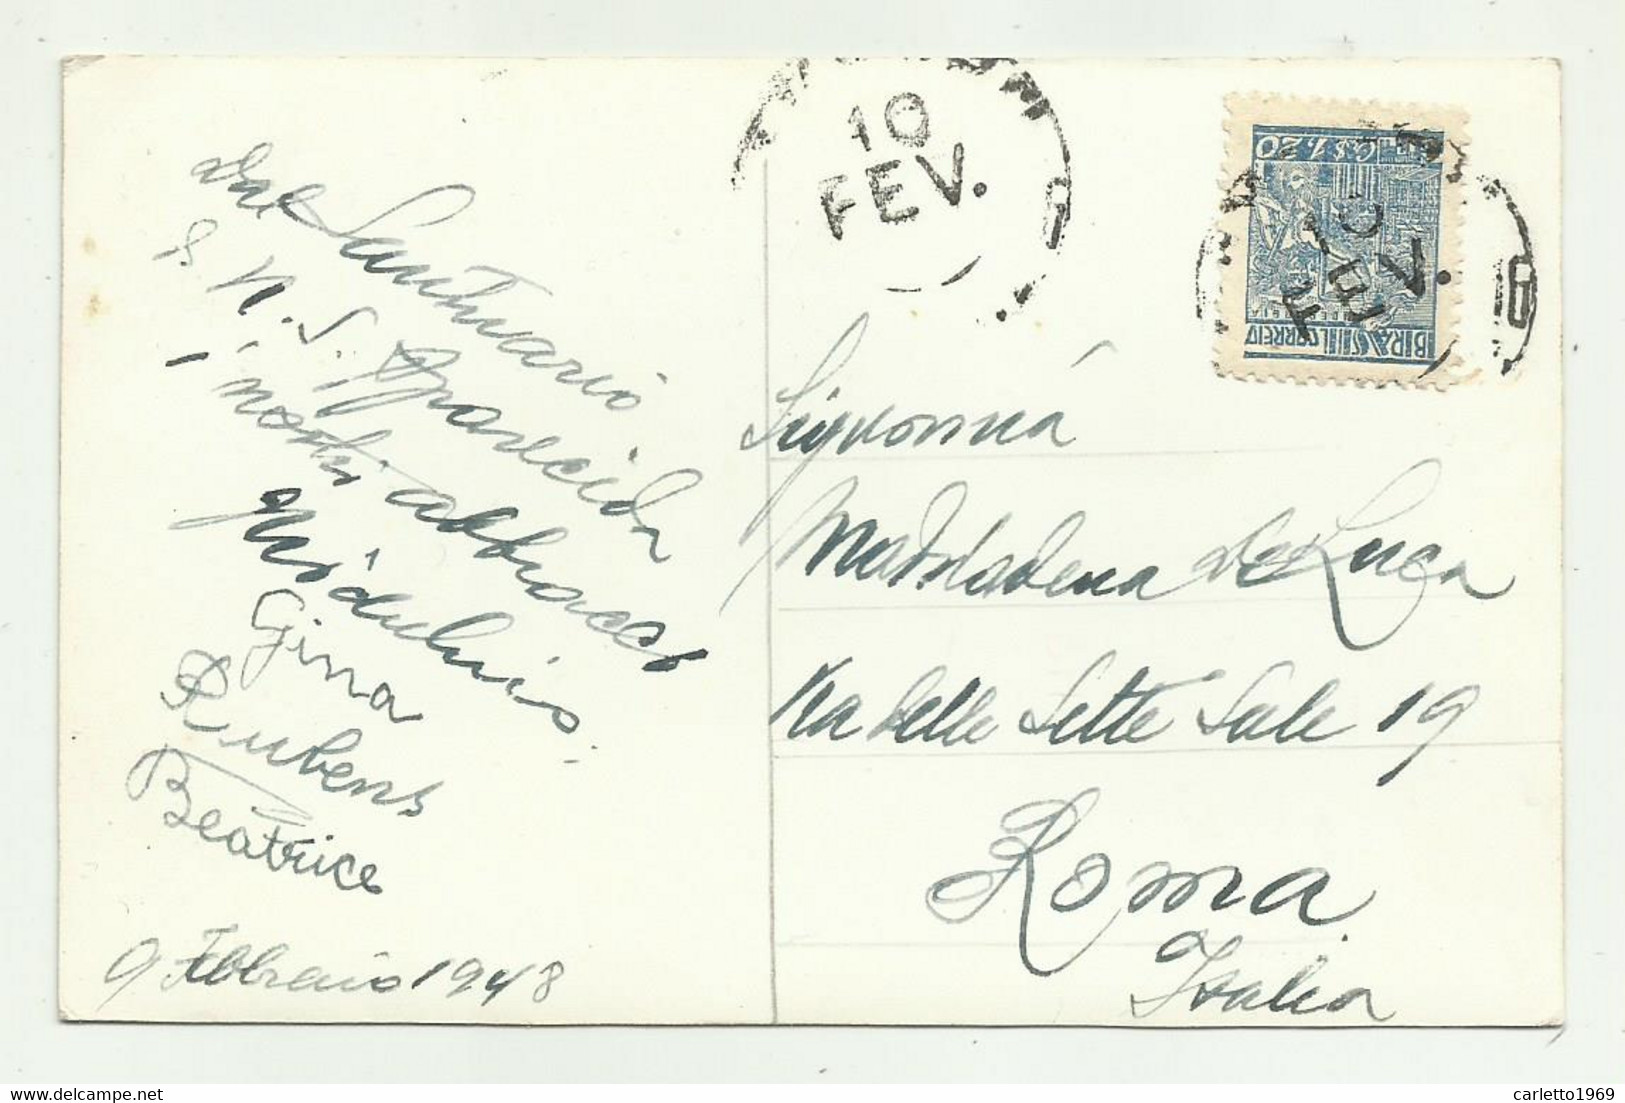 Dal Santuario
di N. S. Aparecida
i nostri abbracci
Gina
Rubens
Beatrice
9 Febbraio 1948
10
FEV.
C$ 1,20
BRASIL CORREIO
10
FEV.
Signorina
Maddalena De Luca
Via delle Sette Sale 19
Roma
Italia
carletto1969